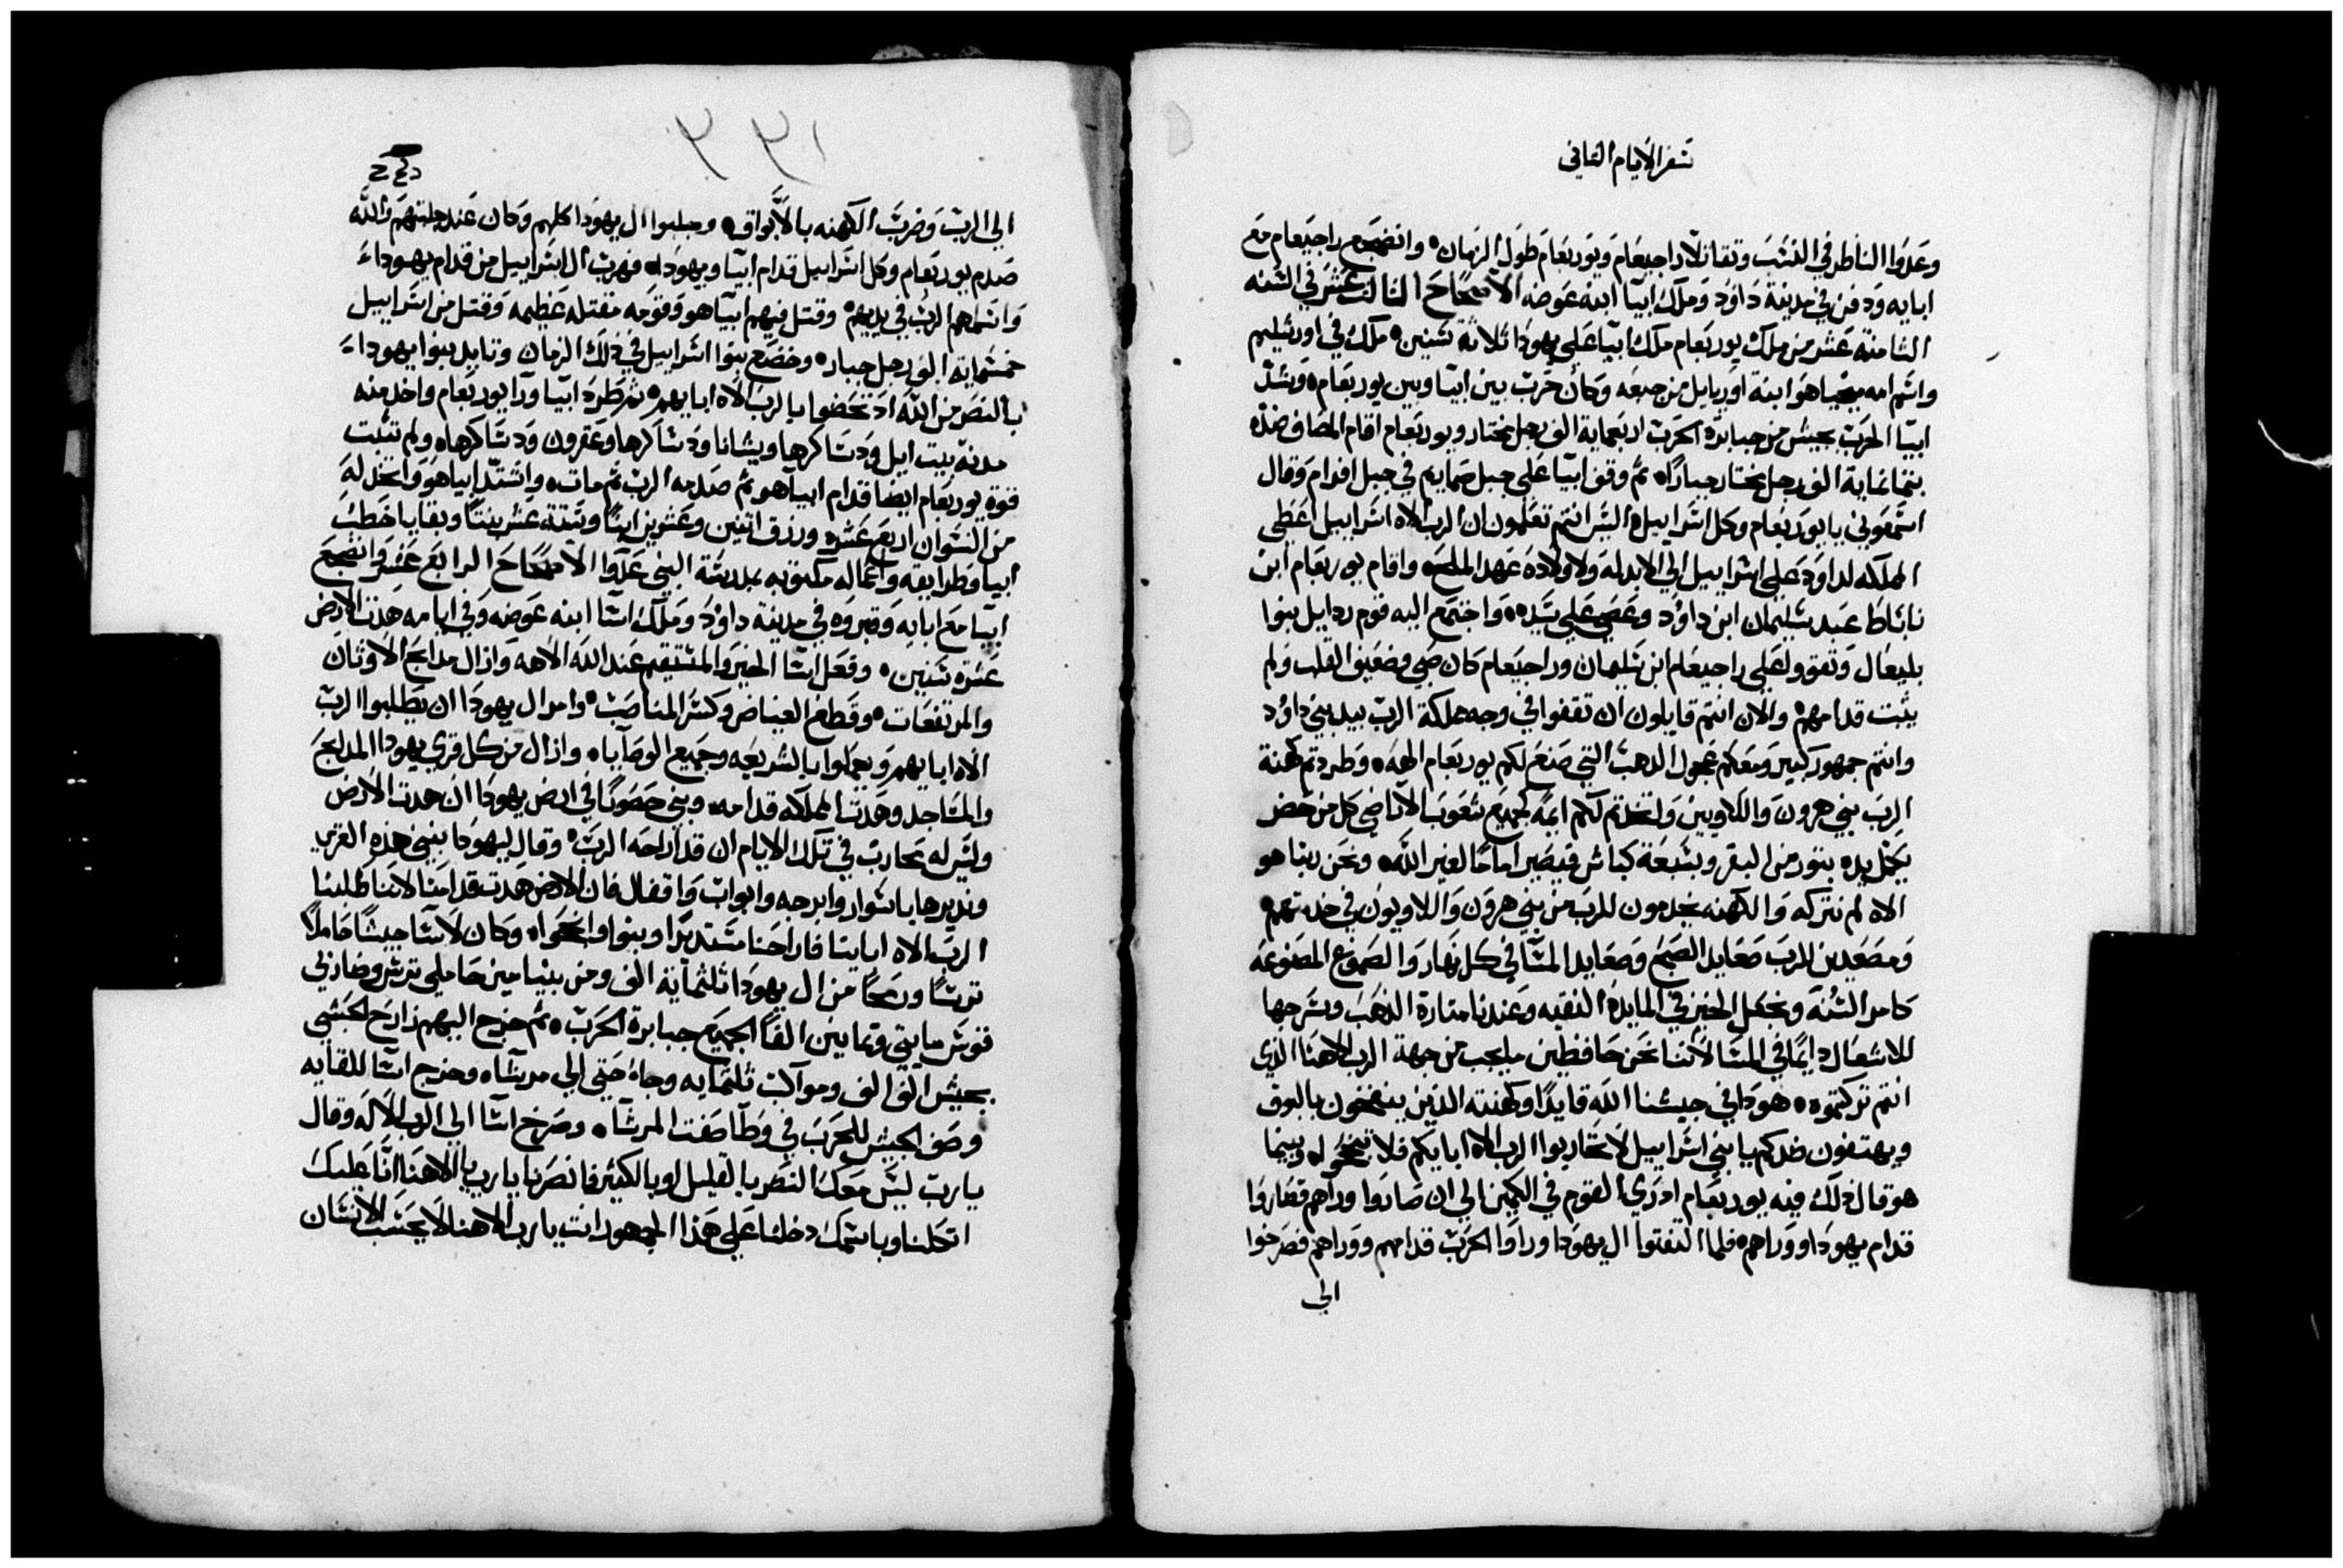 سفر الايام الثاني
وعدوا الناظر في النسب وتقاتلا راجبعام ويوربعام طول الزمان وانضجع راجبعام مع
ابايه ودفن في مدينة داوود وملك ابيا ابنه عوضه الاصحاح الثالث عشر في السنه
الثامنة عشر من ملك يوربعام ملك ابيا على يهودا ثلاثة سنين ملك في اورشليم
واسم امه ميخيا هو ابنة اوريايل من جبعه وكان حرب بين ابيا وبين يوربعام وشد
ابيا الحرب بجيش من جبابرة الحرب اربعماية الف رجل مختار ويوربعام اقام المصاف ضده
بثمانماية الف رجل مختار جبارا ثم وقف ابيا على جبل صمايم في جبل افرام وقال
اسمعوني يا يوربعام وكل اسراييل اليس انتم تعلمون ان الرب الاه اسراييل اعطى
المملكه لداود على اسراييل الى الابد له ولاولاده عهد الملح واقام يوربعام ابن
ناباط عبد سليمان ابن داوود وعصى على سيده واجتمع اليه قوم ردايل بنوا
بليعال وتقووا على راجبعام ابن سليمان وراجبعام كان صبي وضعيف القلب ولم
يثبت قدامهم والان انتم قايلون ان تقفوا في وجه مملكة الرب بيد بني داوود
وانتم جمهور كبير ومعكم عجول الدهب التي صنع لكم يوربعام الهه وطردتم كهنة
الرب بني هرون واللاويين واتخذتم لكم ايمه كجميع شعوب الاراضي كل من حضر
يكمل يده بثور من البقر وبسبعة كباش فيصير اماما لغير الله ونحن ربنا هو
الاه لم نتركه والكهنه يخدمون للرب من بني هرون واللاويون في خدمتهم
ومصعدين للرب صعايد الصبح وصعايد المسا في كل نهار والصموغ المصنوعه
كامر السنه ونجعل الخبز في المايدة النقيه وعندنا منارة الذهب وسرجها
للاشعال دايما في المسا لاننا نحن حافظين ما يجب من جهة الرب الاهنا الذي
انتم تركتموه هوذا في جيشنا الله قايدا وكهنته الذين ينفخون بالبوق
ويهتفون ضدكم يا بني اسراييل لا تحاربوا الرب الاه ابايكم فلا تنجحوا وبينما
هو قال ذلك فيه يوربعام ادرى القوم في الكمين الى ان صاروا وراهم فصاروا
قدام يهودا ووراهم فلما التفتوا ال يهودا وراوا الحرب قدامهم ووراهم فصرخوا
الى
١٣٣
الى الرب وضرب الكهنه بالابواق وجلبوا ال يهودا كلهم وكان عند جلبتهم والله
صدم يوربعام وكل اسراييل قدام ابيا ويهودا فهرب ال اسراييل من قدام يهوداء
واسلمهم الرب في يديهم وقتل فيهم ابيا هو وقومه مقتله عظيمه وقتل من اسراييل
خمسماية الف رجل جباره وخضع بنوا اسراييل في ذلك الزمان وتايد بنوا يهوداء
بالنصر من الله اد تحضوا بالرب الاه ابايهم ثم طرد ابيا ورا يوربعام واخذ منه
مدنه بيت ايل ودساكرها ويشانا ودساكرها وعفرون ودساكرها ولم تثبت
قوة يوربعام ايضا قدام ابيا هو ثم صدمه الرب ثم مات واشتد ابيا هو واتخذ له
من النسوان اربع عشر ورزق اتنين وعشرين ابنا وستة عشر بنتا وبقايا خطب
ابيا وطرايقه واعماله مكتوبه بمدرسة النبي عدوا الاصحاح الرابع عشر وانضجع
ابيا مع ابايه وقبروه في مدينة داوود وملك اسا ابنه عوضه وفي ايامه هدت الارض
عشرة سنين وفعل اسا الخير والمستقيم عند الله الاهه وازال مدابح الاوثان
والمرتفعات وقطع الغياض وكسر المناصب وامر ال يهودا ان يطلبوا الرب
الاه ابايهم ويعملوا بالشريعه وجميع الوصايا وازال من كل قرى يهودا المدابح
والمساجد وهدت المملكه قدامه وبنى حصونا في ارض يهودا ان هدت الارض
وليس له محارب في تلك الايام ان قد اراحه الرب وقال ليهودا نبني هذه القرى
ونديرها باسوار وابرجه وابواب واقفال فان الارض هدت قدامنا لاننا طلبنا
الرب الاه اباينا فاراحنا مستديرا وبنوا وانجحوا وكان لاسا جيشا حاملا
ترسا ورمحا من ال يهودا ثلثماية الف ومن بنيامين حاملى ترس وضاربي
قوس مايتي وثمانين الفا الجميع جبابرة الحرب ثم خرج اليهم زارح الحبشي
بجيش الف الف ومواكب ثلثمايه وجاء حتى الى مريشا وخرج اسا للقايه
وصف الجيش للحرب في وطا صفت المرشا وصرخ اسا الى الرب الاله وقال
يا رب ليس معك النصر بالقليل او بالكثير فانصرنا يا رب يا الاهنا انا عليك
اتكلنا وباسمك دخلنا على هذا الجمهور انت يا رب الاهنا لا يحسب الانسان